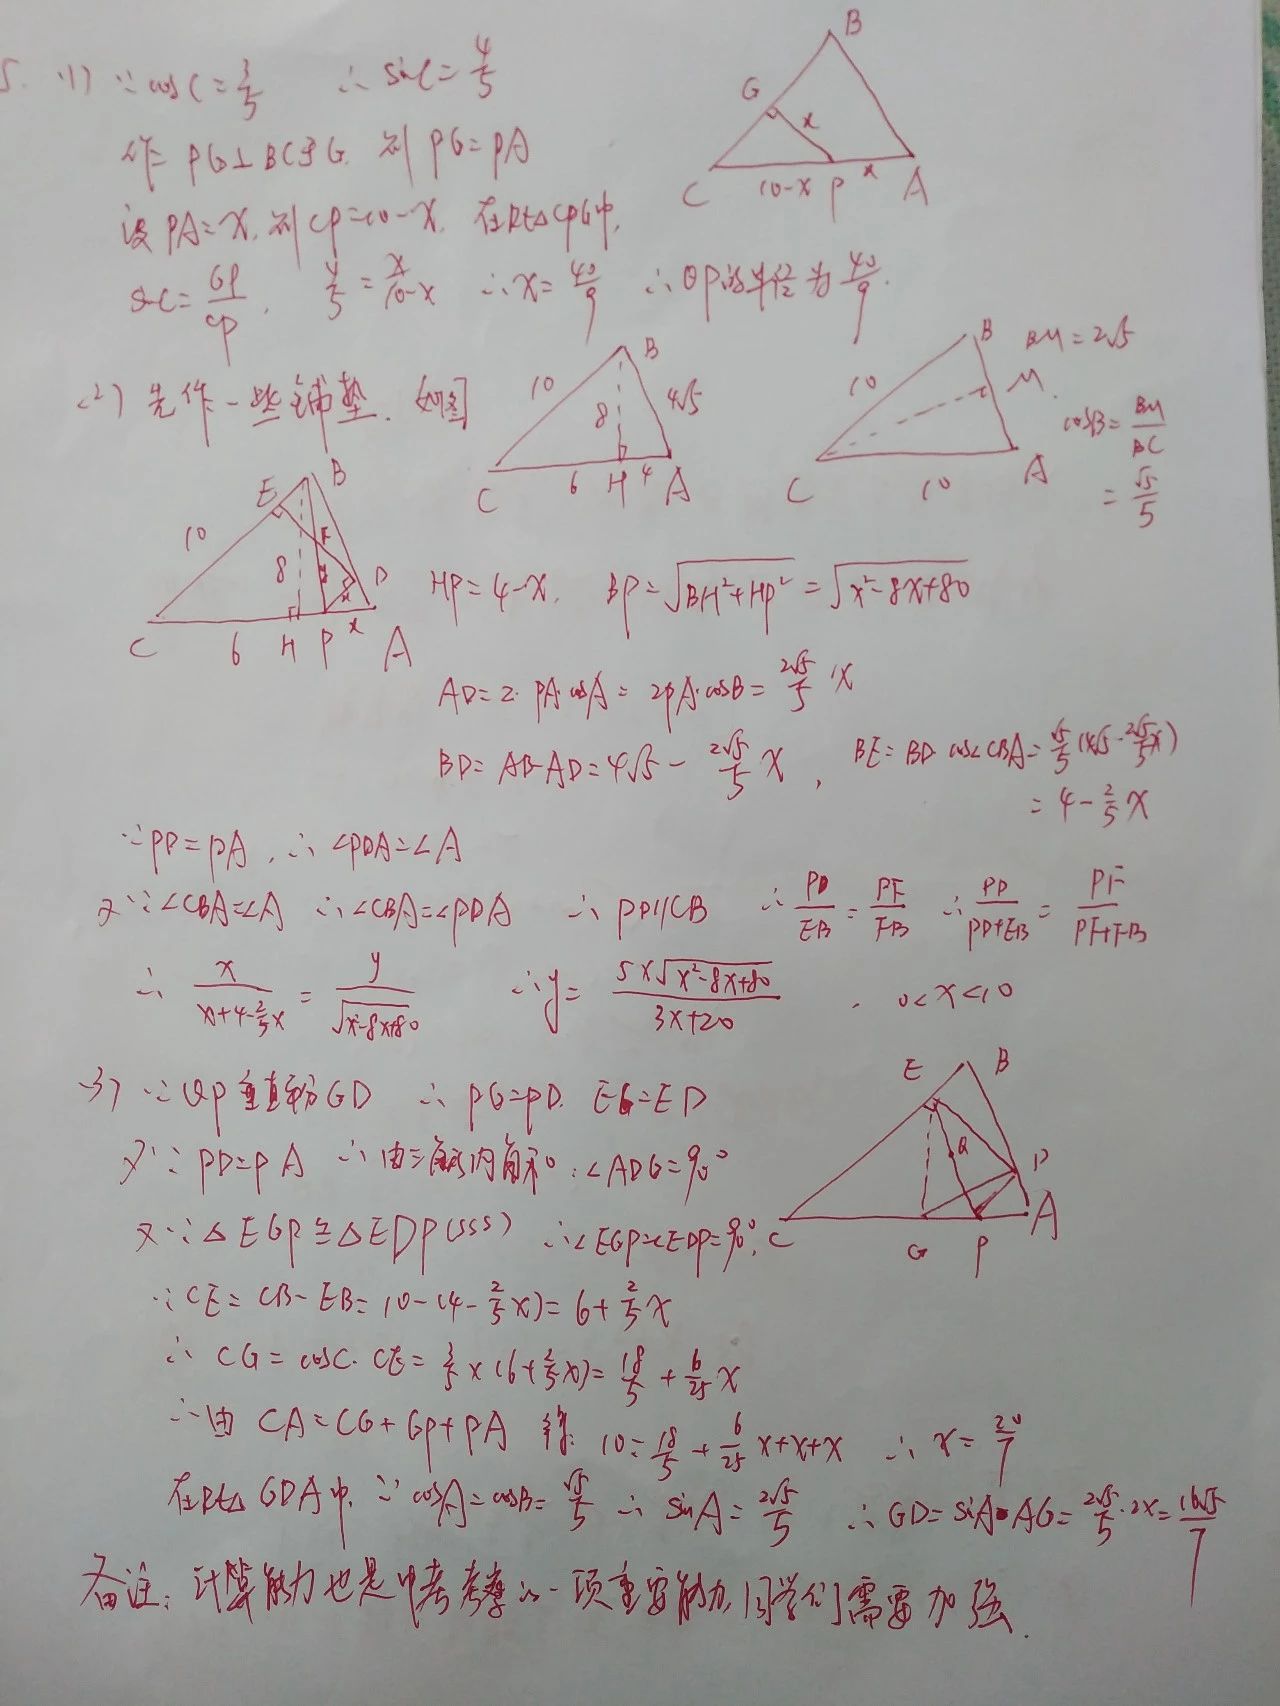 5. (1) ∵ cosC = 3/5 ∴ sinC = 4/5
作 PG⊥BC于G. 则 PG=PA
设 PA=x, 则 CP=10-x, 在Rt△CPG中,
sinC = GP/CP, 4/5 = x/(10-x) ∴ x = 40/9 ∴ ⊙P的半径为 40/9.
B
G
x
C
10-x
P
x
A
(2) 先作一些铺垫. 如图
B
10
8
4√5
C
6
H
4
A
B
BM=2√5
10
M.
C
10
A
cosB = BM/BC
= √5/5
E
B
10
F
8
y
D
x
C
6
H
P
x
A
HP=4-x, BP=√(BH²+HP²) = √(x²-8x+80)
AD=2·PA·cosA = 2PA·cosB = (2√5/5)x
BD=AB-AD=4√5 - (2√5/5)x, BE=BD·cos∠CBA= √5/5 (4√5 - (2√5/5)x)
= 4 - (2/5)x
∵ PD=PA, ∴ ∠PDA=∠A
又∵ ∠CBA=∠A ∴ ∠CBA=∠PDA ∴ PD//CB ∴ PD/EB = PF/FB ∴ PD/(PD+EB) = PF/(PF+FB)
∴ x/(x+4-(2/5)x) = y/√(x²-8x+80) ∴ y = 5x√(x²-8x+80)/(3x+20), 0<x<10
(3) ∵ QP垂直平分GD ∴ PG=PD. EG=ED
又∵ PD=PA ∴ 由三角形内角和: ∠ADG=90°
又∵ △EGP≌△EDP(SSS) ∴ ∠EGP=∠EDP=90°,
E
B
Q
D
C
G
P
A
∵ CE=CB-EB=10-(4-(2/5)x)=6+(2/5)x
∴ CG=cosC·CE= 3/5×(6+(2/5)x)= 18/5 + (6/25)x
∴ 由 CA=CG+GP+PA 得: 10= 18/5 + (6/25)x+x+x ∴ x= 20/7
在Rt△GDA中, ∵ cosA=cosB= √5/5 ∴ sinA= 2√5/5 ∴ GD=sinA·AG= 2√5/5·2x= 16√5/7
备注: 计算能力也是中考考察的一项重要能力, 同学们需要加强.